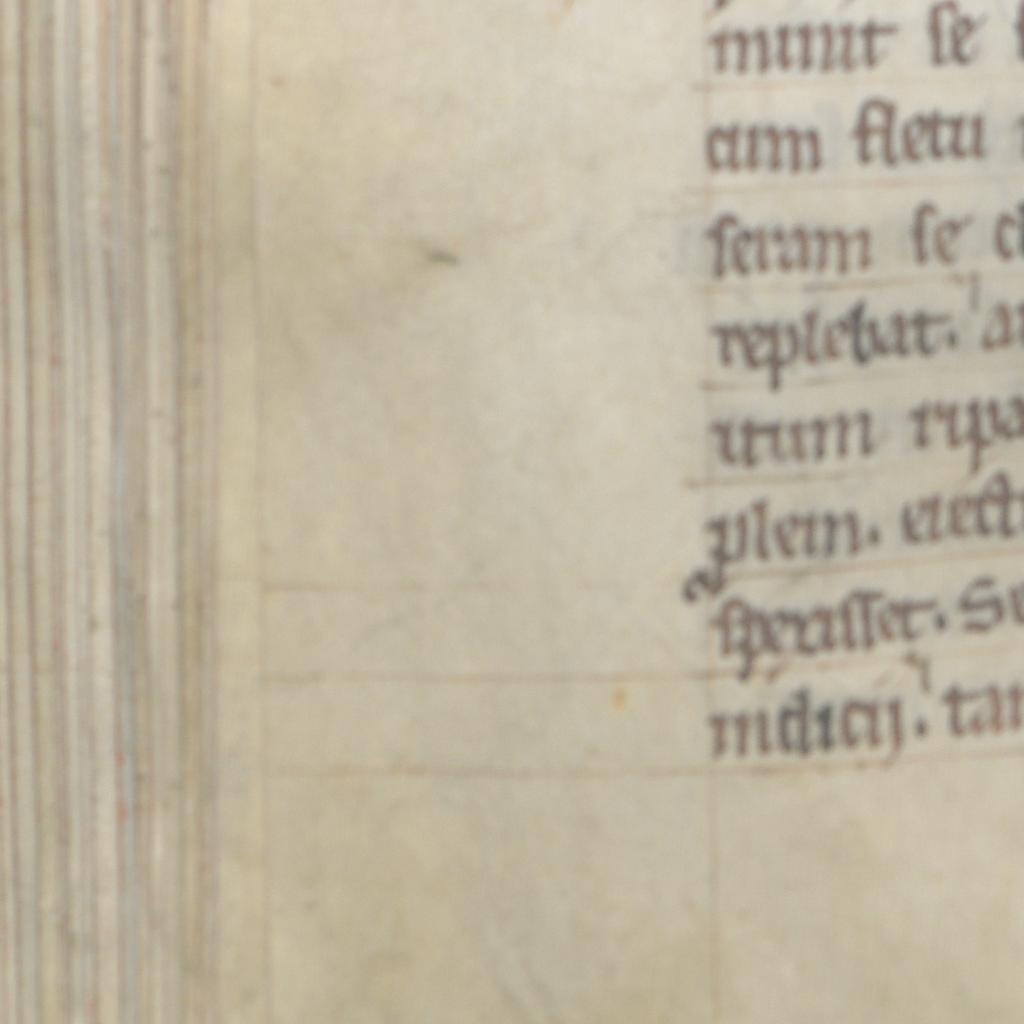 munt se
cum fletu
seram se
replebat. 
utrum ripa
plem. etect
sperasset. Su
indicij. tan